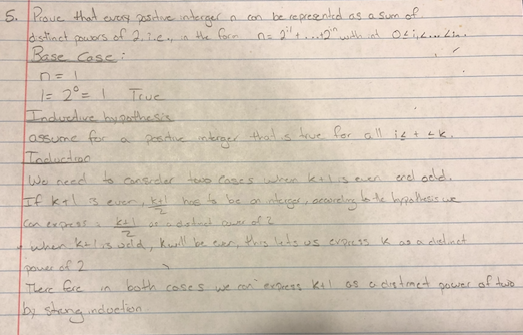 5. Prove that every positive interger n can be represented as a sum of
distinct powers of 2, i.e., in the form n= 2^i1 + ... + 2^in with int 0≤i,<...<in.
Base Case:
n = 1
1= 2^0 = 1 True
Inductive hypothesis
assume for a positive interger that s true for all 1≤ t ≤k.
Induction
We need to consider two cases when k+1 is even and odd.
If k+1 is even, k+1/2 has to be an interger, according to the hypothesis we
can express k+1/2 as a distinct power of 2
when k+1 is odd, k will be even, this lets us express k as a distinct
power of 2
There fore in both cases we can express k+1 as a distinct power of two
by strong induction